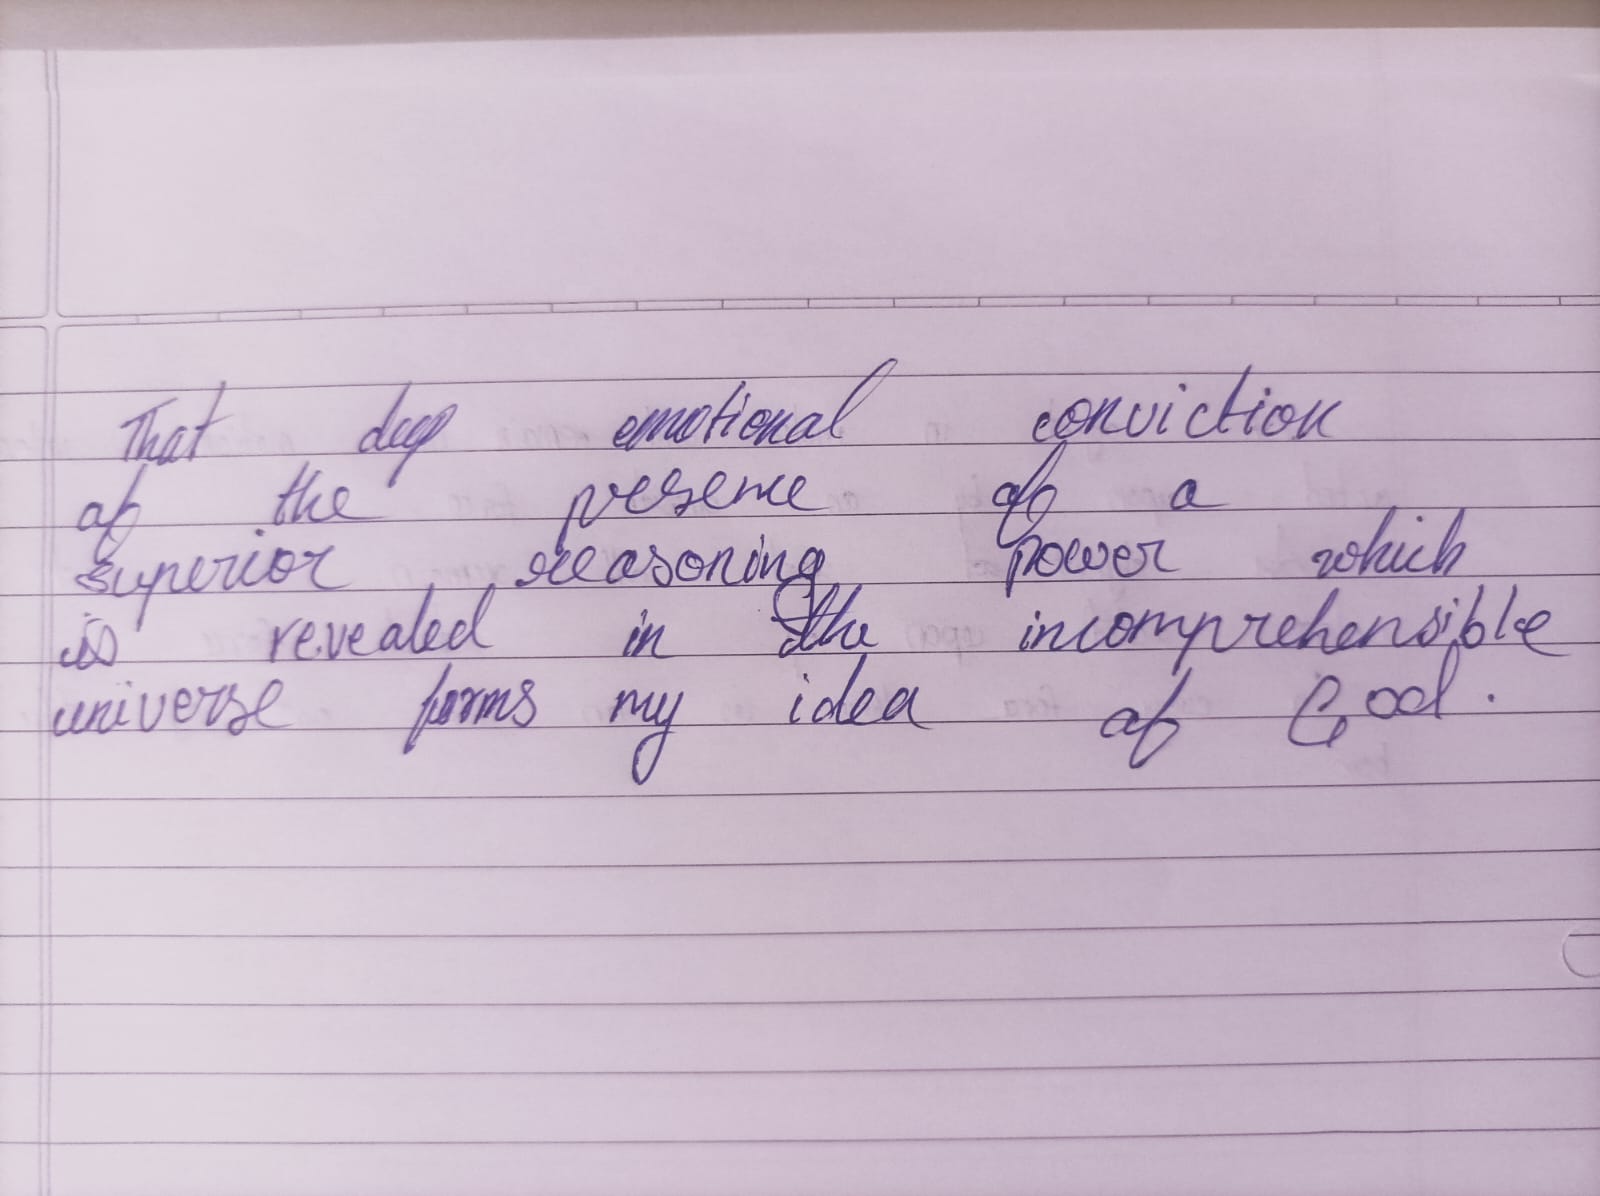 That deep emotional conviction
of the presence of a
superior reasoning power which
is revealed in the incomprehensible
universe forms my idea of God.